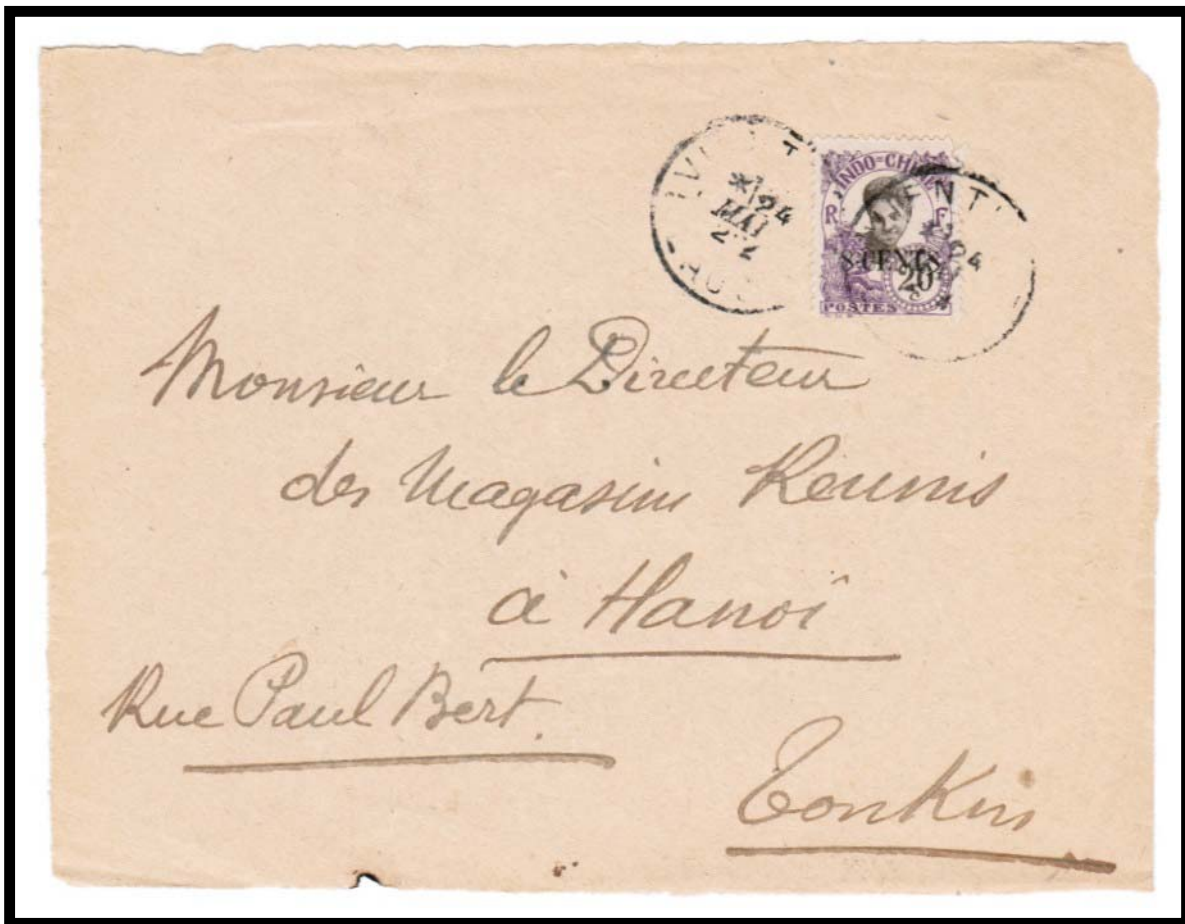 INDO=CHINE
R F
8 CENTS
20
POSTES
24
MAI
VIENT
24
Monsieur le Directeur
des Magasins Reunis
à Hanoï
Rue Paul Bert.
Tonkin